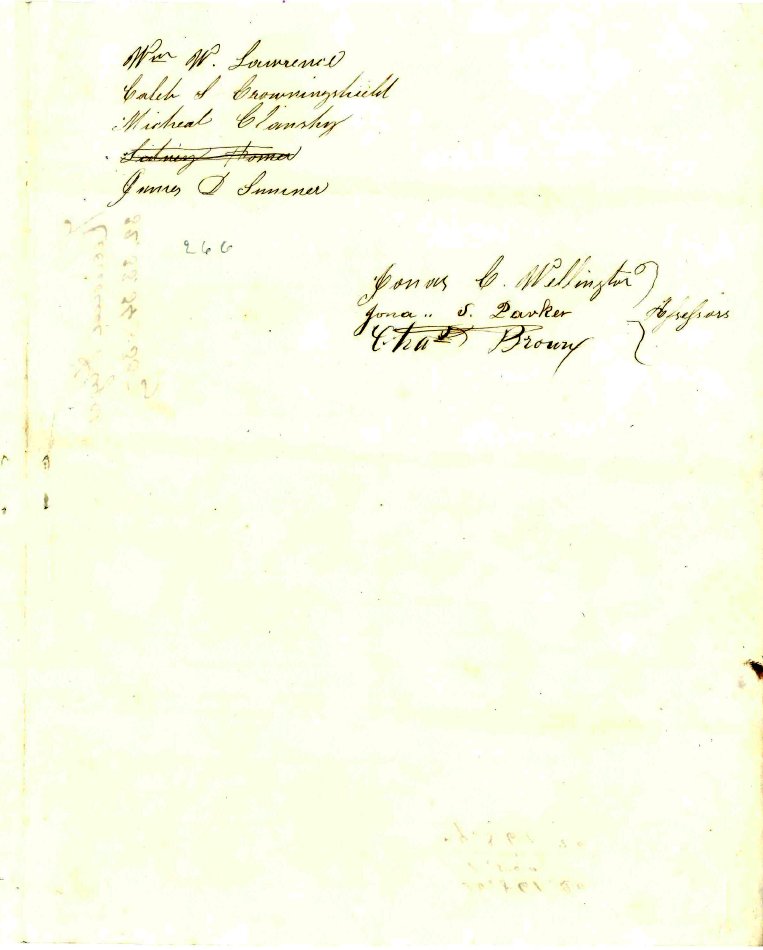 Wm W. Lawrence
Caleb S Crowningshield
Micheal Clansky
Sidney Homer
James D Sumner
266
Jonas C. Wellington
Jona.. S. Parker
Assessors
Chas Brown